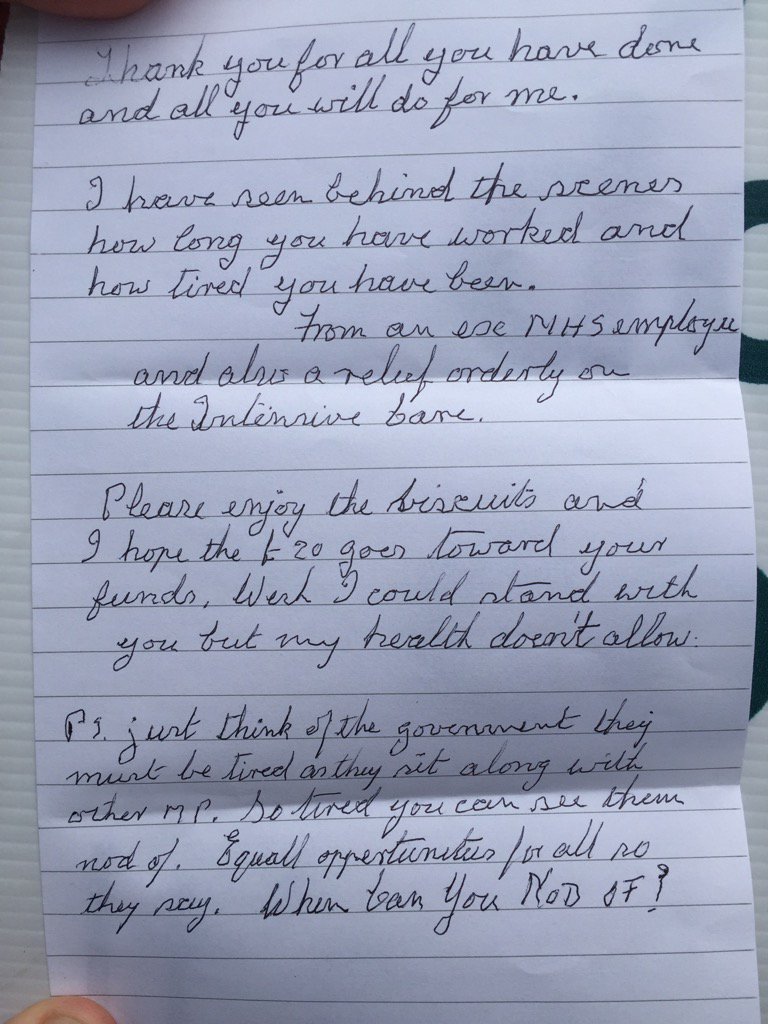 Thank you for all you have done
and all you will do for me.
I have seen behind the scenes
how long you have worked and
how tired you have been.
From an exe NHS employee
and also a relief orderly on
the Intensive Care.
Please enjoy the biscuits and
I hope the £20 goes toward your
funds. Wish I could stand with
you but my health doesn't allow.
PS. just think of the government they
must be tired as they sit along with
other MP. So tired you can see them
nod of. Equall oppertunities for all so
they say. When Can You NOD OF?